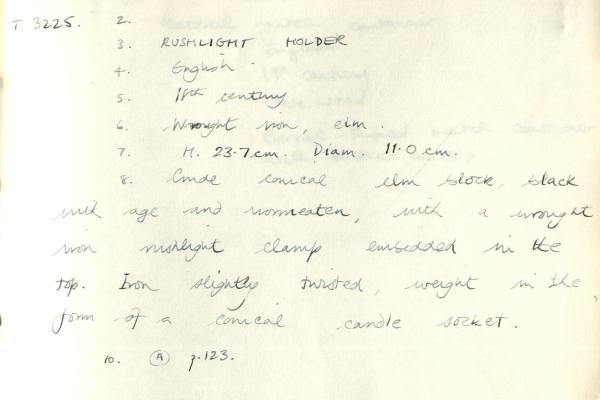 T. 3225. 2.
3. RUSHLIGHT HOLDER
4. English.
5. 18th century
6. Wrought iron, elm.
7. H. 23.7cm. Diam. 11.0 cm.
8. Crude conical elm block, black
with age and wormeaten, with a wrought
iron rushlight clamp embedded in the
top. Iron slightly twisted, weight in the
form of a conical candle socket.
10. (A) p.123.